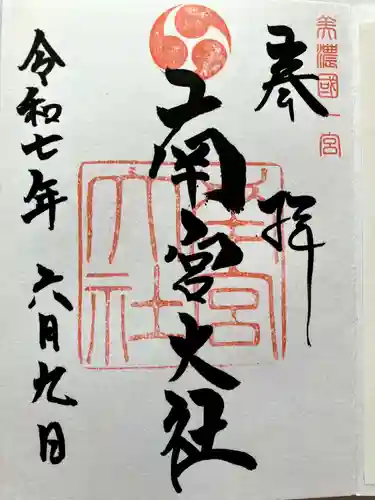 美濃國一宮
奉拝
南宮大社
令和七年六月九日
南宮大社